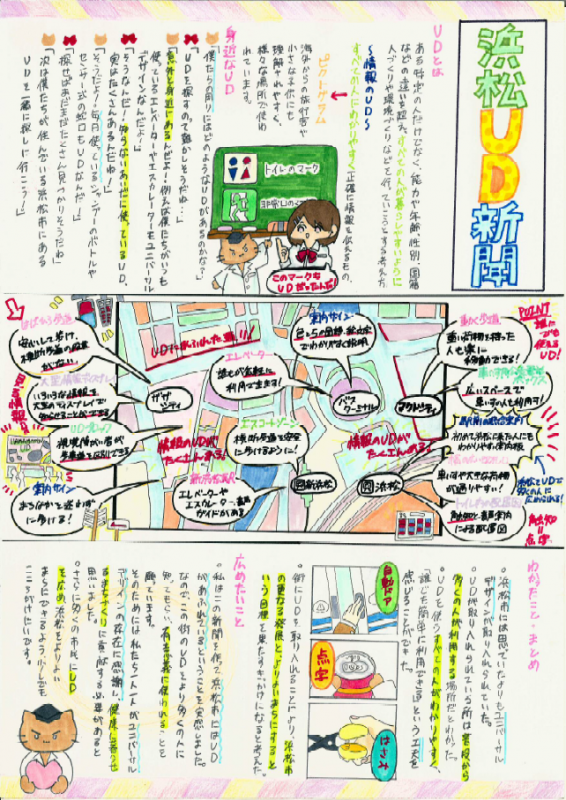 浜松UD新聞
UDとは
ある特定の人だけでなく、能力や年齢、性別、国籍
などの違いを超え、すべての人が暮らしやすいように
人づくりや環境づくりなどを行っていこうとする考え方
～情報のUD～
すべての人にわかりやすく、正確に情報を伝えるもの。
ピクトグラム
海外からの旅行客や
小さな子供にも
理解されやすく、
様々な場所で使わ
れています。
トイレのマーク
非常口のマーク
このマークも
UDだったんだ!
身近なUD
「僕たちの周りにはどのようなUDがあるのかな?」
「UDを探すのって難かしそうだね…」
「意外と身近にあるんだよ!例えば僕たちがいつも
使っているエレベーターやエスカレーターもユニバーサル
デザインなんだよ!」
「そうなんだ!知らないあいだに使っているUD、
実はたくさんあるんだね!」
「そうだよ!毎日使っているシャンプーのボトルや
センサー式の蛇口もUDなんだ!」
「探せばまだまだたくさん見つかりそうだね」
「次は僕たちが住んでいる浜松市にある
UDを一緒に探しに行こう!」
POINT
誰にでも
使える
UD!
動く歩道
重い荷物を持った
人も楽に
移動できる!
広いスペースで
車いすの人も利用可!
初めて浜松に来た人にも
わかりやすい案内板
車いすや大きな荷物
が通りやすい!
触知図と音声案内
による配慮図
触知図
=点字
案内サイン
エレベーター
誰もが気軽に
利用できます!
バス
ターミナル
ザザ
シティ
エスコートゾーン
横断歩道を安全
に歩けるように!
情報のUDが
たくさんある!
情報のUDが
たくさんある!
新浜松
浜松
新浜松駅
エレベーターや
エスカレーター、音声
ガイドがある
大型情報ディスプレイ
いろいろな情報を
大型のディスプレイで
知ることができる
UDブロック
視覚障がい者が
案内サイン
わかったこと・まとめ
・浜松市には思っていたよりもユニバーサル
デザインが取り入れられていた。
・UDが取り入れられている所は普段から
多くの人が利用する場所だとわかった。
・UDを使うすべての人がわかりやすく、
「誰でも簡単に利用できる」という工夫を
感じることができた。
自動ドア
点字
はさみ
・街にUDを取り入れることにより、浜松市
の更なる発展とよりよいまちにすると
いう目標を果たすきっかけになると考えた。
広めたいこと
・私はこの新聞を使って浜松市にはUD
があふれているということを実感しました。
なので、この街のUDをより多くの人に
知ってもらい、有意義に使われることを
願っています。
そのためには私たち一人一人がユニバーサル
デザインの存在に感謝し、健康に暮らせ
るまちづくりに貢献する必要があると
思いました。
・さらに多くの市民にUD
を広め、浜松をよりよい
まちにできるよう、少しでも
こころがけたいです。